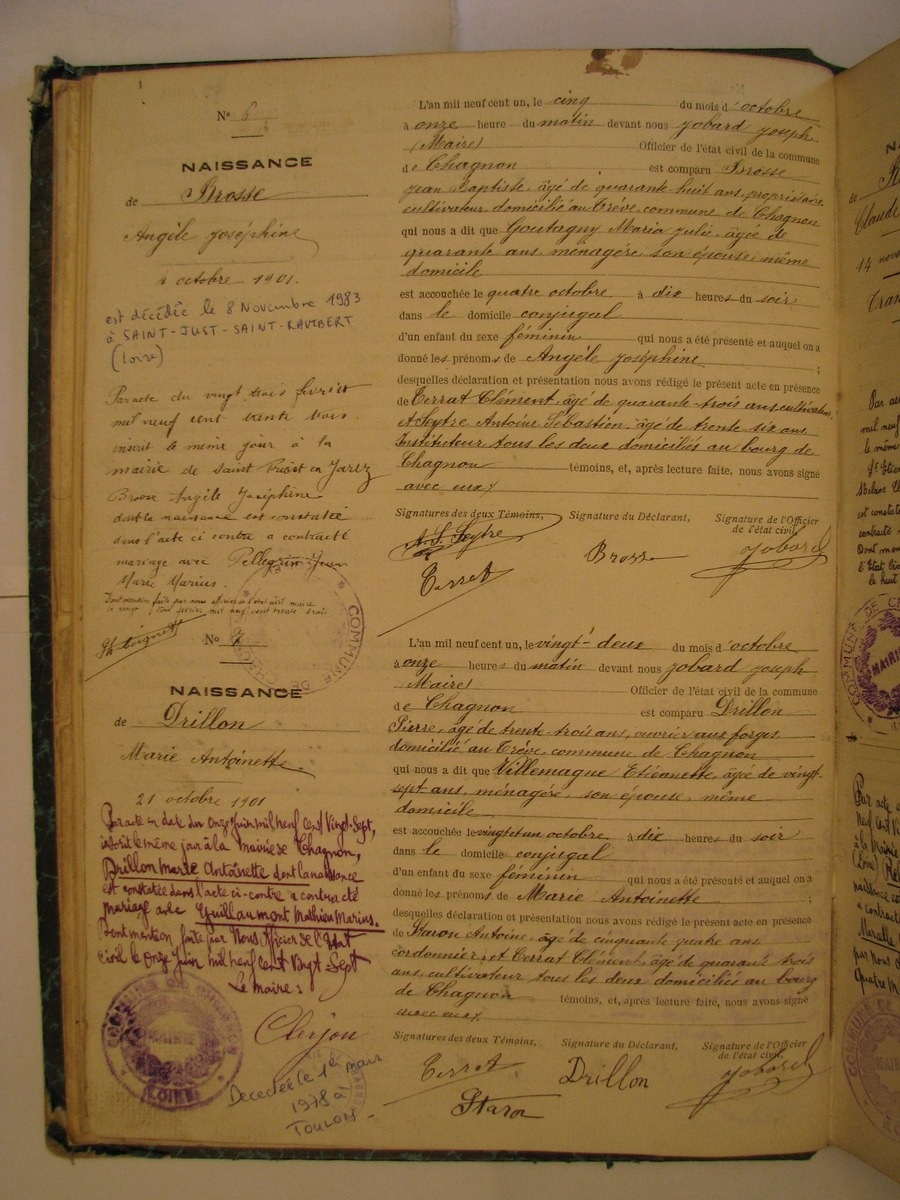 N° 6
NAISSANCE
de Brosse
Angèle Joséphine
4 octobre 1901.
est décédée le 8 Novembre 1983
à SAINT-JUST-SAINT-RAMBERT
(Loire)
Par acte du vingt trois février
mil neuf cent trente trois
inscrit le même jour à la
mairie de Saint Priest en Jarez
Brosse Angèle Joséphine
dont la naissance est constatée
dans l'acte ci contre a contracté
mariage avec Pellegrin Jean
Marie Marius.
L'an mil neuf cent un, le cinq du mois d'octobre
à onze heure du matin devant nous Jobard Joseph
(Maire) Officier de l'état civil de la commune
de Chagnon est comparu Brosse
Jean Baptiste, âgé de quarante huit ans, propriétaire
cultivateur, domicilié au Crève, commune de Chagnon
qui nous a dit que Goutagny Maria Julie, âgée de
quarante ans, ménagère, son épouse, même
domicile
est accouchée le quatre octobre à dix heures du soir
dans le domicile conjugal
d'un enfant du sexe féminin qui nous a été présenté et auquel on a
donné les prénoms de Angèle Joséphine ;
desquelles déclaration et présentation nous avons rédigé le présent acte en présence
de Terrat Clément, âgé de quarante-trois ans, cultivateur,
et Seytre Antoine Sébastien, âgé de trente-six ans
Instituteur tous les deux domiciliés au bourg de
Chagnon témoins, et, après lecture faite, nous avons signé
avec eux.
Signatures des deux Témoins, Signature du Déclarant, Signature de l'Officier
de l'état civil,
A. S. Seytre Brosse Jobard
Terrat
N° 7
NAISSANCE
de Drillon
Marie Antoinette
21 octobre 1901
Par acte en date du Onze Juin mil neuf Cent Vingt-Sept,
inscrit le même jour à la Mairie de Chagnon,
Drillon Marie Antoinette dont la naissance
est constatée dans l'acte ci-contre a contracté
mariage avec Guillaumont Mathieu Marius.
Dont mention faite par Nous Officier de l'Etat
civil le Onze Juin mil neuf Cent Vingt Sept
Le Maire :
Décédée le 1er mars
1978 à
TOULON
L'an mil neuf cent un, le vingt-deux du mois d'octobre
à onze heures du matin devant nous Jobard Joseph
(Maire) Officier de l'état civil de la commune
de Chagnon est comparu Drillon
Pierre, âgé de trente-trois ans, ouvrier aux forges
domicilié au Crève, commune de Chagnon
qui nous a dit que Villemagne Etiennette, âgée de vingt-
sept ans, ménagère, son épouse, même
domicile
est accouchée vingt et un octobre à dix heures du soir
dans le domicile conjugal
d'un enfant du sexe féminin qui nous a été présenté et auquel on a
donné les prénoms de Marie Antoinette ;
desquelles déclaration et présentation nous avons rédigé le présent acte en présence
de Staron Antoine, âgé de cinquante quatre ans
cordonnier, et Terrat Clément, âgé de quarante trois
ans, cultivateur tous les deux domiciliés au bourg
de Chagnon témoins, et, après lecture faite, nous avons signé
avec eux.
Signatures des deux Témoins, Signature du Déclarant, Signature de l'Officier
de l'état civil,
Terrat Drillon Jobard
Staron